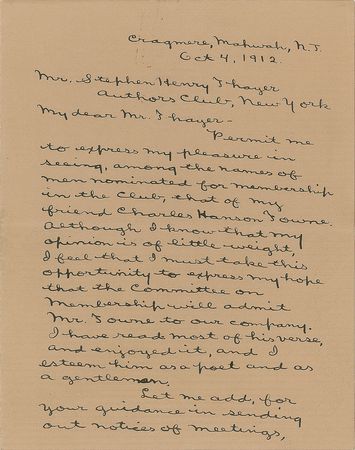 Cragmere, Mahwah, N.J.
Oct 4, 1912.
Mr. Stephen Henry Thayer
Authors Club, New York
My dear Mr. Thayer -
Permit me
to express my pleasure in
seeing, among the names of
men nominated for membership
in the Club, that of my
friend Charles Hanson Towne.
Although I know that my
opinion is of little weight,
I feel that I must take this
opportunity to express my hope
that the Committee on
Membership will admit
Mr. Towne to our company.
I have read most of his verse,
and enjoyed it, and I
esteem him as a poet and as
a gentleman.
Let me add, for
your guidance in sending
out notices of meetings,